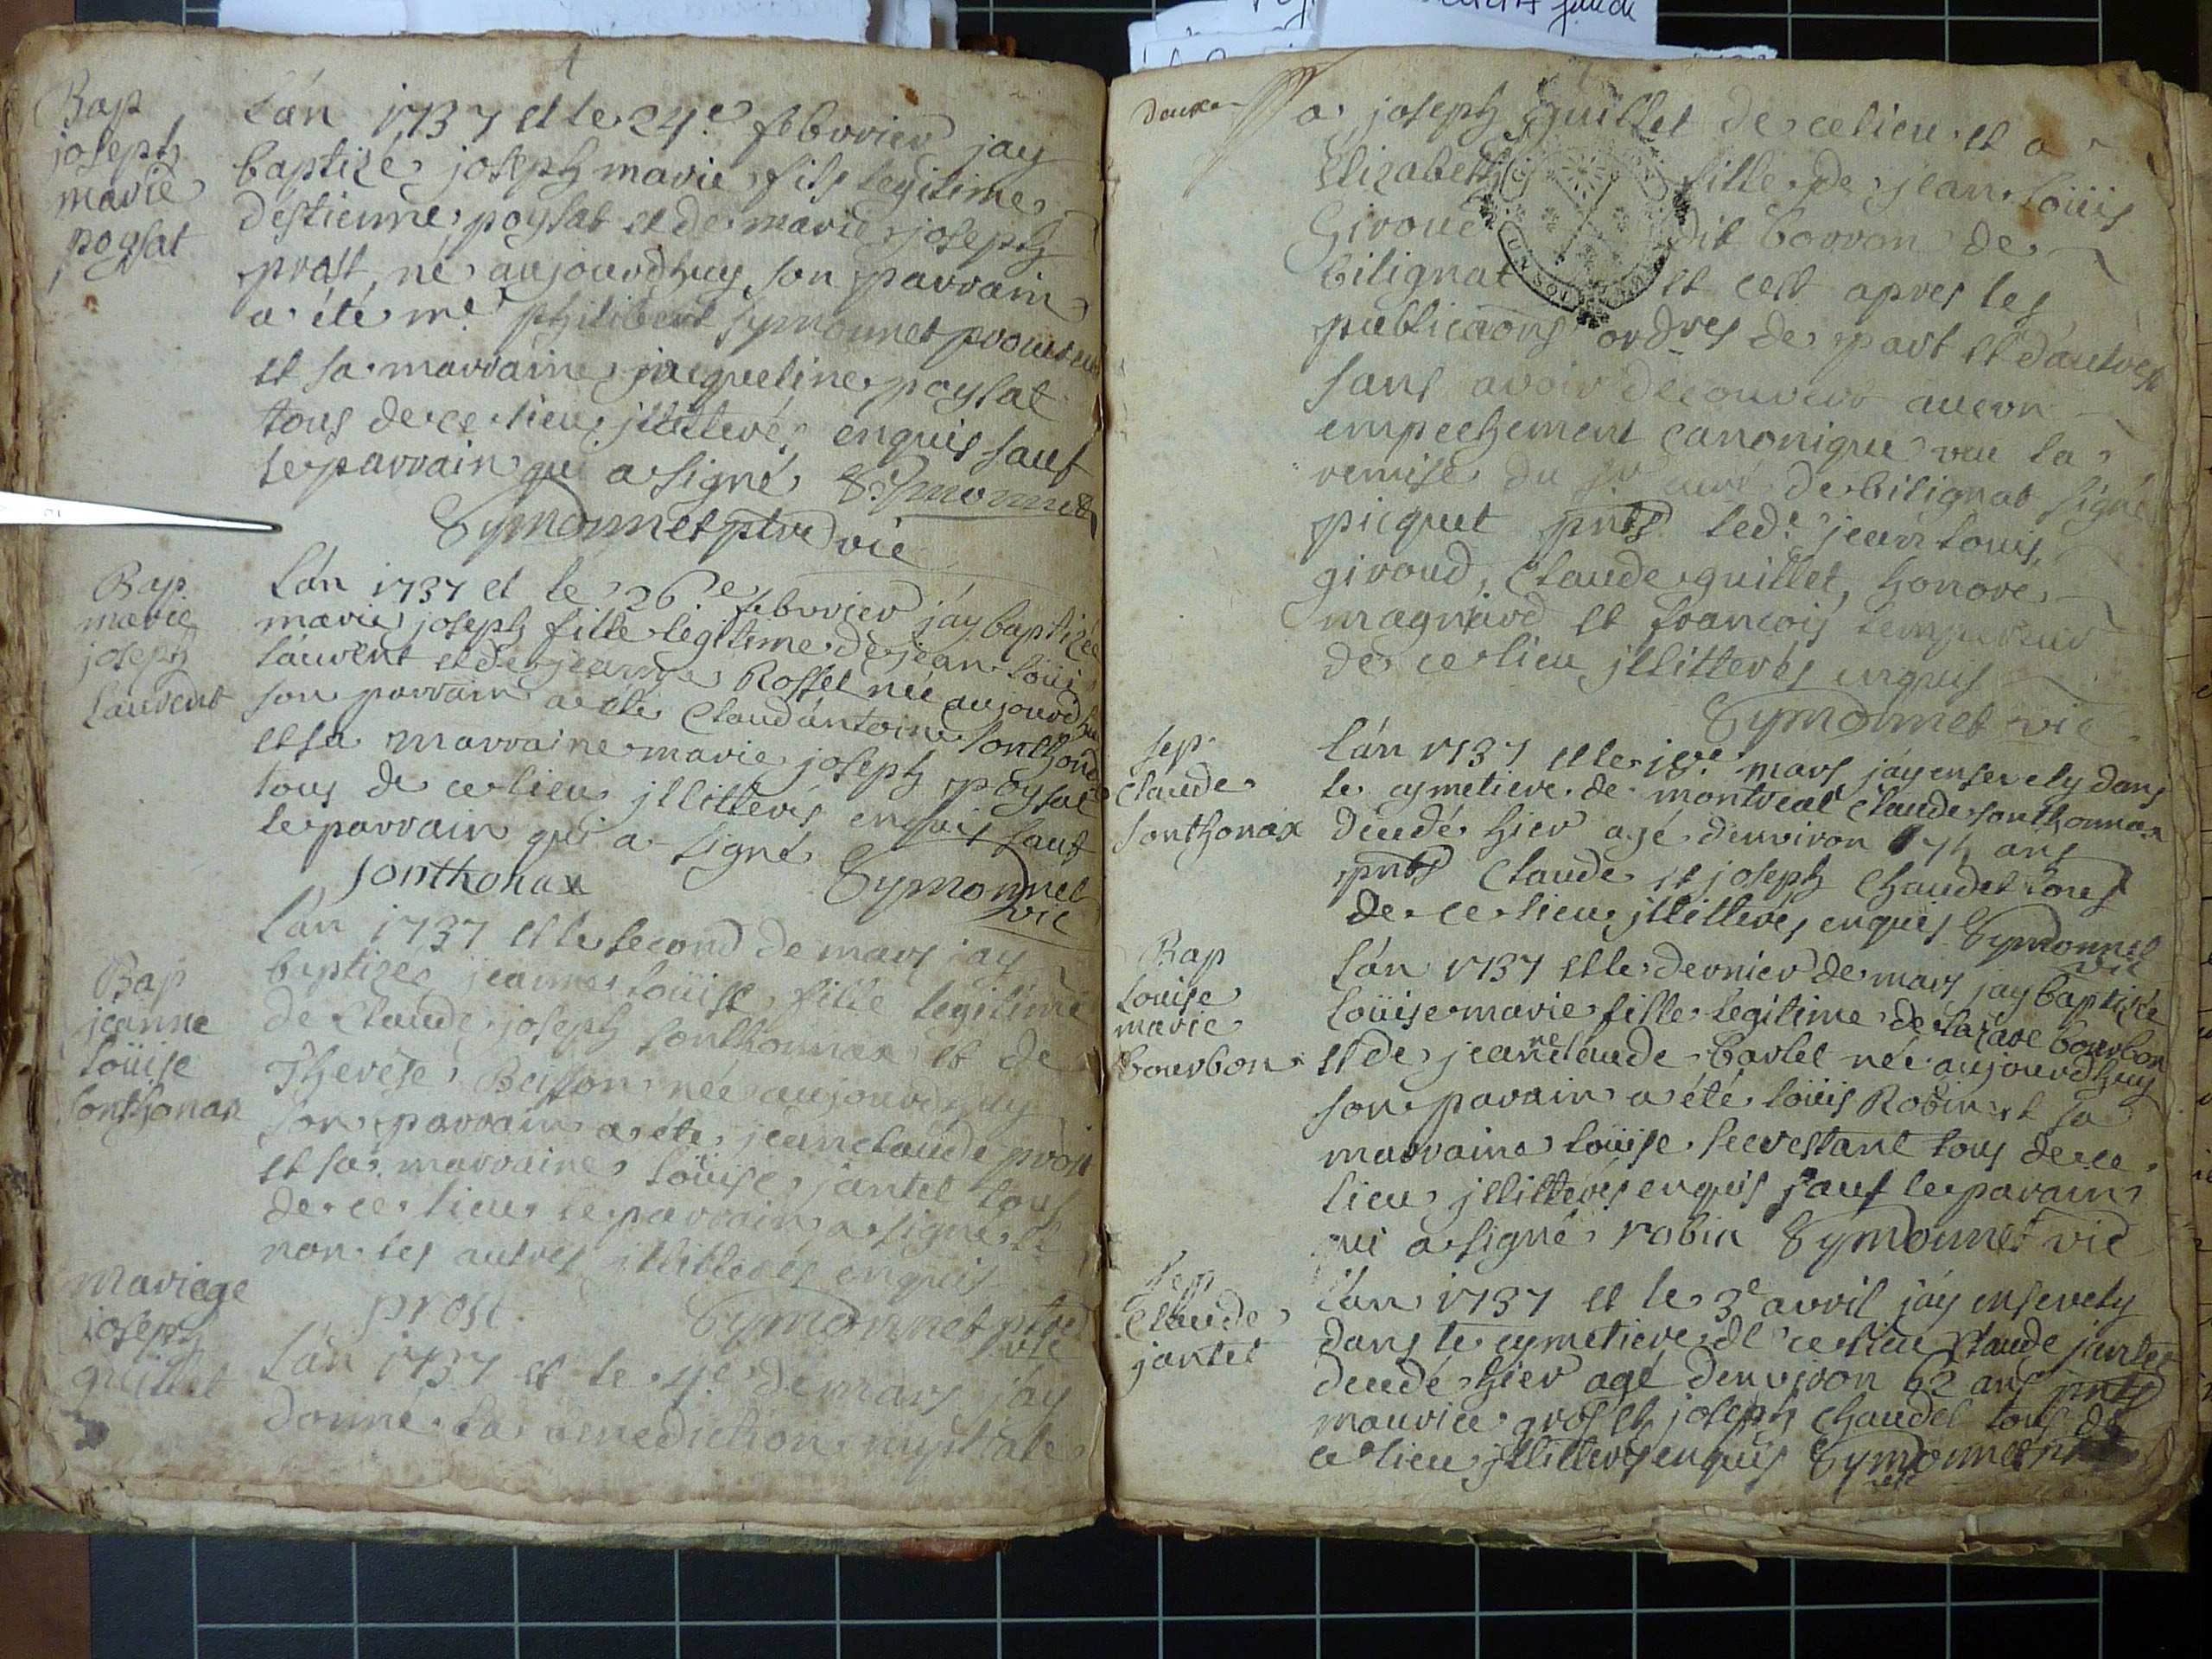 Bap
joseph
marie
poysat
L'an 1737 et le 24e febvrier jay
baptizé joseph marie fils legitime
d'estienne poysat et de marie joseph
prost, né aujourdhuy son parrain
a été me philibert symonnet procureur
et sa marraine jacqueline poysat
tous de ce lieu jllitterés enquis sauf
le parrain qui a signé Symonnet
Symonnet ptre vic
Bap
marie
joseph
Laurent
L'an 1737 et le 26e febvrier j'ay baptizée
marie joseph fille legitime de jean louis
laurent et de jeanne Rosset née aujourdhuy
son parrain a été Claud'antoine sonthonax
et sa marraine marie joseph poysat
tous de ce lieu jllitterés enquis sauf
le parrain qui a signé
sonthonax Symonnet
vic
Bap
jeanne
loüise
sonthonax
L'an 1737 et le second de mars jay
baptizée jeanne loüise fille legitime
de Claude joseph sonthonnax et de
Therese Beisson née aujourdhuy
son parrain a été jean claude prost
et sa marraine loüise jantet tous
de ce lieu le parrain a signé et
non les autres jllitterés enquis
prost Symonnet ptre
vic
mariage
joseph
guillet
L'an 1737 et le 4e de mars j'ay
donné la benediction nuptiale
deux
a joseph guillet de ce lieu et a
Elizabeth fille de jean loüis
Giroud dit borron de
bilignat et cest apres les
publicaons ordres de part et d'autres
sans avoir decouvert aucun
empechement canonique veu la
remise du sr curé de bilignat signé
picquet pnts led. jean louis
giroud, Claude guillet, honoré
magniard et francois lempereur
de ce lieu jllitterés enquis
Symonnet vic
sep
Claude
sonthonax
L'an 1737 et le jer mars j'ay ensevely dans
le cymetiere de montreal Claude sonthonnax
decedé hier agé d'environ 74 ans
pnts Claude et joseph Chaudet tous
de ce lieu jllitterés enquis Symonnet
vic
Bap
Louise
marie
bourbon
L'an 1737 et le dernier de mars jay baptizée
Loüise marie fille legitime de lazare bourbon
et de jeanne claude barlet née aujourdhuy
son parain a été loüis Robin et sa
marraine loüise secrestant tous de ce
lieu jllitterés enquis sauf le parain
qui a signé robin Symonnet vic
sep
Claude
jantet
L'an 1737 et le 3e avril j'ay ensevely
dans le cymetiere de ce lieu Claude jantet
decedé hier agé d'environ 62 ans pnts
maurice grosset joseph Chaudet tous de
ce lieu jllitterés enquis Symonnet
vic